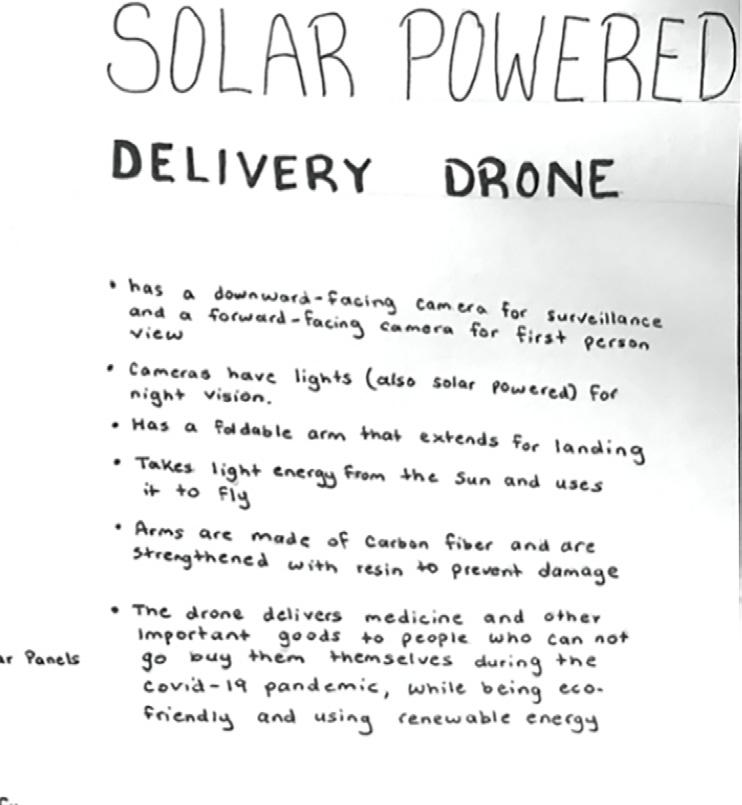 SOLAR POWERED
DELIVERY DRONE
• has a downward-facing camera for surveillance
and a forward-facing camera for first person
view
• Cameras have lights (also solar powered) for
night vision.
• Has a foldable arm that extends for landing
• Takes light energy from the sun and uses
it to fly
• Arms are made of carbon fiber and are
strengthened with resin to prevent damage
• The drone delivers medicine and other
important goods to people who can not
ar Panels
go buy them themselves during the
covid-19 pandemic, while being eco-
friendly and using renewable energy